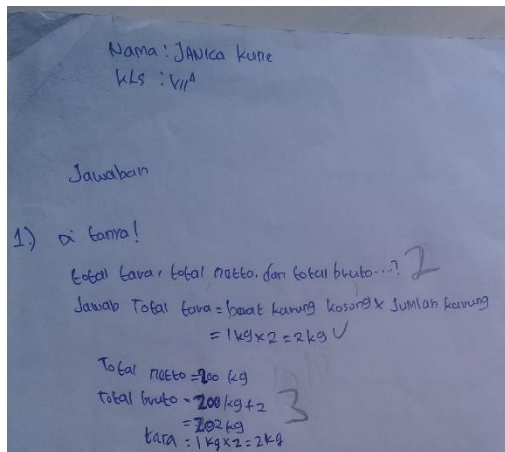 Nama : JANICA Kune
KLS : VII A
Jawaban
1.) di tanya!
total tara, total netto, dan total bruto...? 2
Jawab Total tara = berat karung kosong x Jumlah karung
= 1 kg x 2 = 2 kg ✓
Total netto = 200 kg
total bruto = 200 kg + 2 3
= 202 kg
tara = 1 kg x 2 = 2 kg